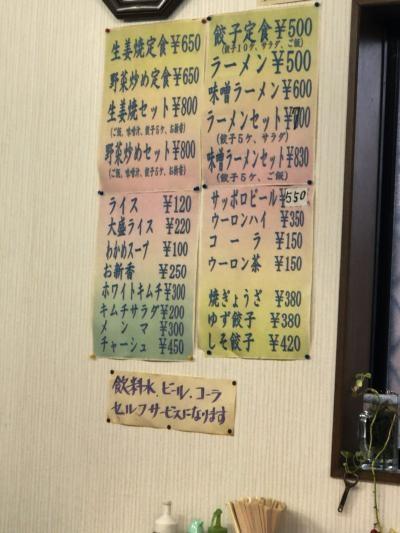 生姜焼定食¥650
野菜炒め定食¥650
生姜焼セット¥800
(ご飯、味噌汁、餃子5ケ、お新香)
野菜炒めセット¥800
(ご飯、味噌汁、餃子5ケ、お新香)
ライス ¥120
大盛ライス ¥220
わかめスープ ¥100
お新香 ¥250
ホワイトキムチ¥300
キムチサラダ¥200
メンマ ¥300
チャーシュ ¥450
餃子定食¥500
(餃子10ケ、サラダ、ご飯)
ラーメン¥500
味噌ラーメン¥600
ラーメンセット¥700
(餃子5ケ、サラダ)
味噌ラーメンセット¥830
(餃子5ケ、ご飯)
サッポロビール¥550
ウーロンハイ ¥350
コーラ ¥150
ウーロン茶 ¥150
焼ぎょうざ ¥380
ゆず餃子 ¥380
しそ餃子 ¥420
飲料水、ビール、コーラ
セルフサービスになります